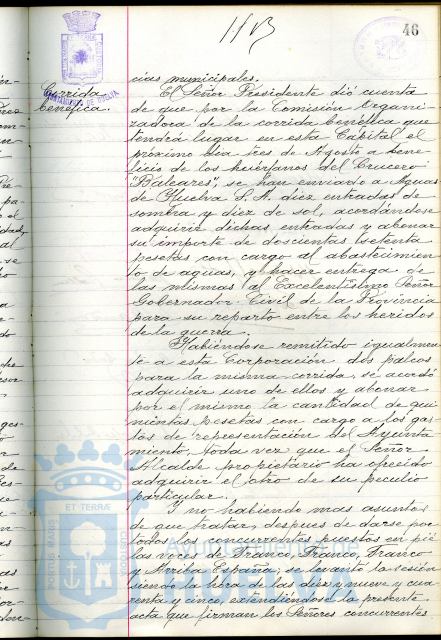 1/13
46
AYUNTAMIENTO DE HUELVA
Corrida
benéfica.
cias municipales.
El Señor Presidente dió cuenta
de que por la Comisión Organi-
zadora de la corrida benéfica que
tendrá lugar en esta Capital el
próximo dia tres de Agosto a bene-
ficio de los huérfanos del Crucero
"Baleares", se han enviado a Aguas
de Huelva S.A. diez entradas de
sombra y diez de sol, acordándose
adquirir dichas entradas y abonar
su importe de doscientas setenta
pesetas con cargo al abastecimien-
to de aguas, y hacer entrega de
las mismas al Excelentísimo Señor
Gobernador Civil de la Provincia
para su reparto entre los heridos
de la guerra.
Habiéndose remitido igualmen-
te a esta Corporación dos palcos
para la misma corrida, se acordó
adquirir uno de ellos y abonar
por el mismo la cantidad de qui-
nientas pesetas con cargo a los gas-
tos de representación del Ayunta-
miento, toda vez que el Señor
Alcalde propietario ha ofrecido
adquirir el otro de su peculio
particular.
Y no habiendo mas asuntos
de que tratar, despues de darse por
todos los concurrentes puestos en pié
las voces de Franco, Franco, Franco
y Arriba España, se levantó la sesión
siendo la hora de las diez y nueve y cua-
renta y cinco, extendiéndose la presente
acta que firman los Señores concurrentes
PORTUS MARIS ET TERRAE CUSTODIA